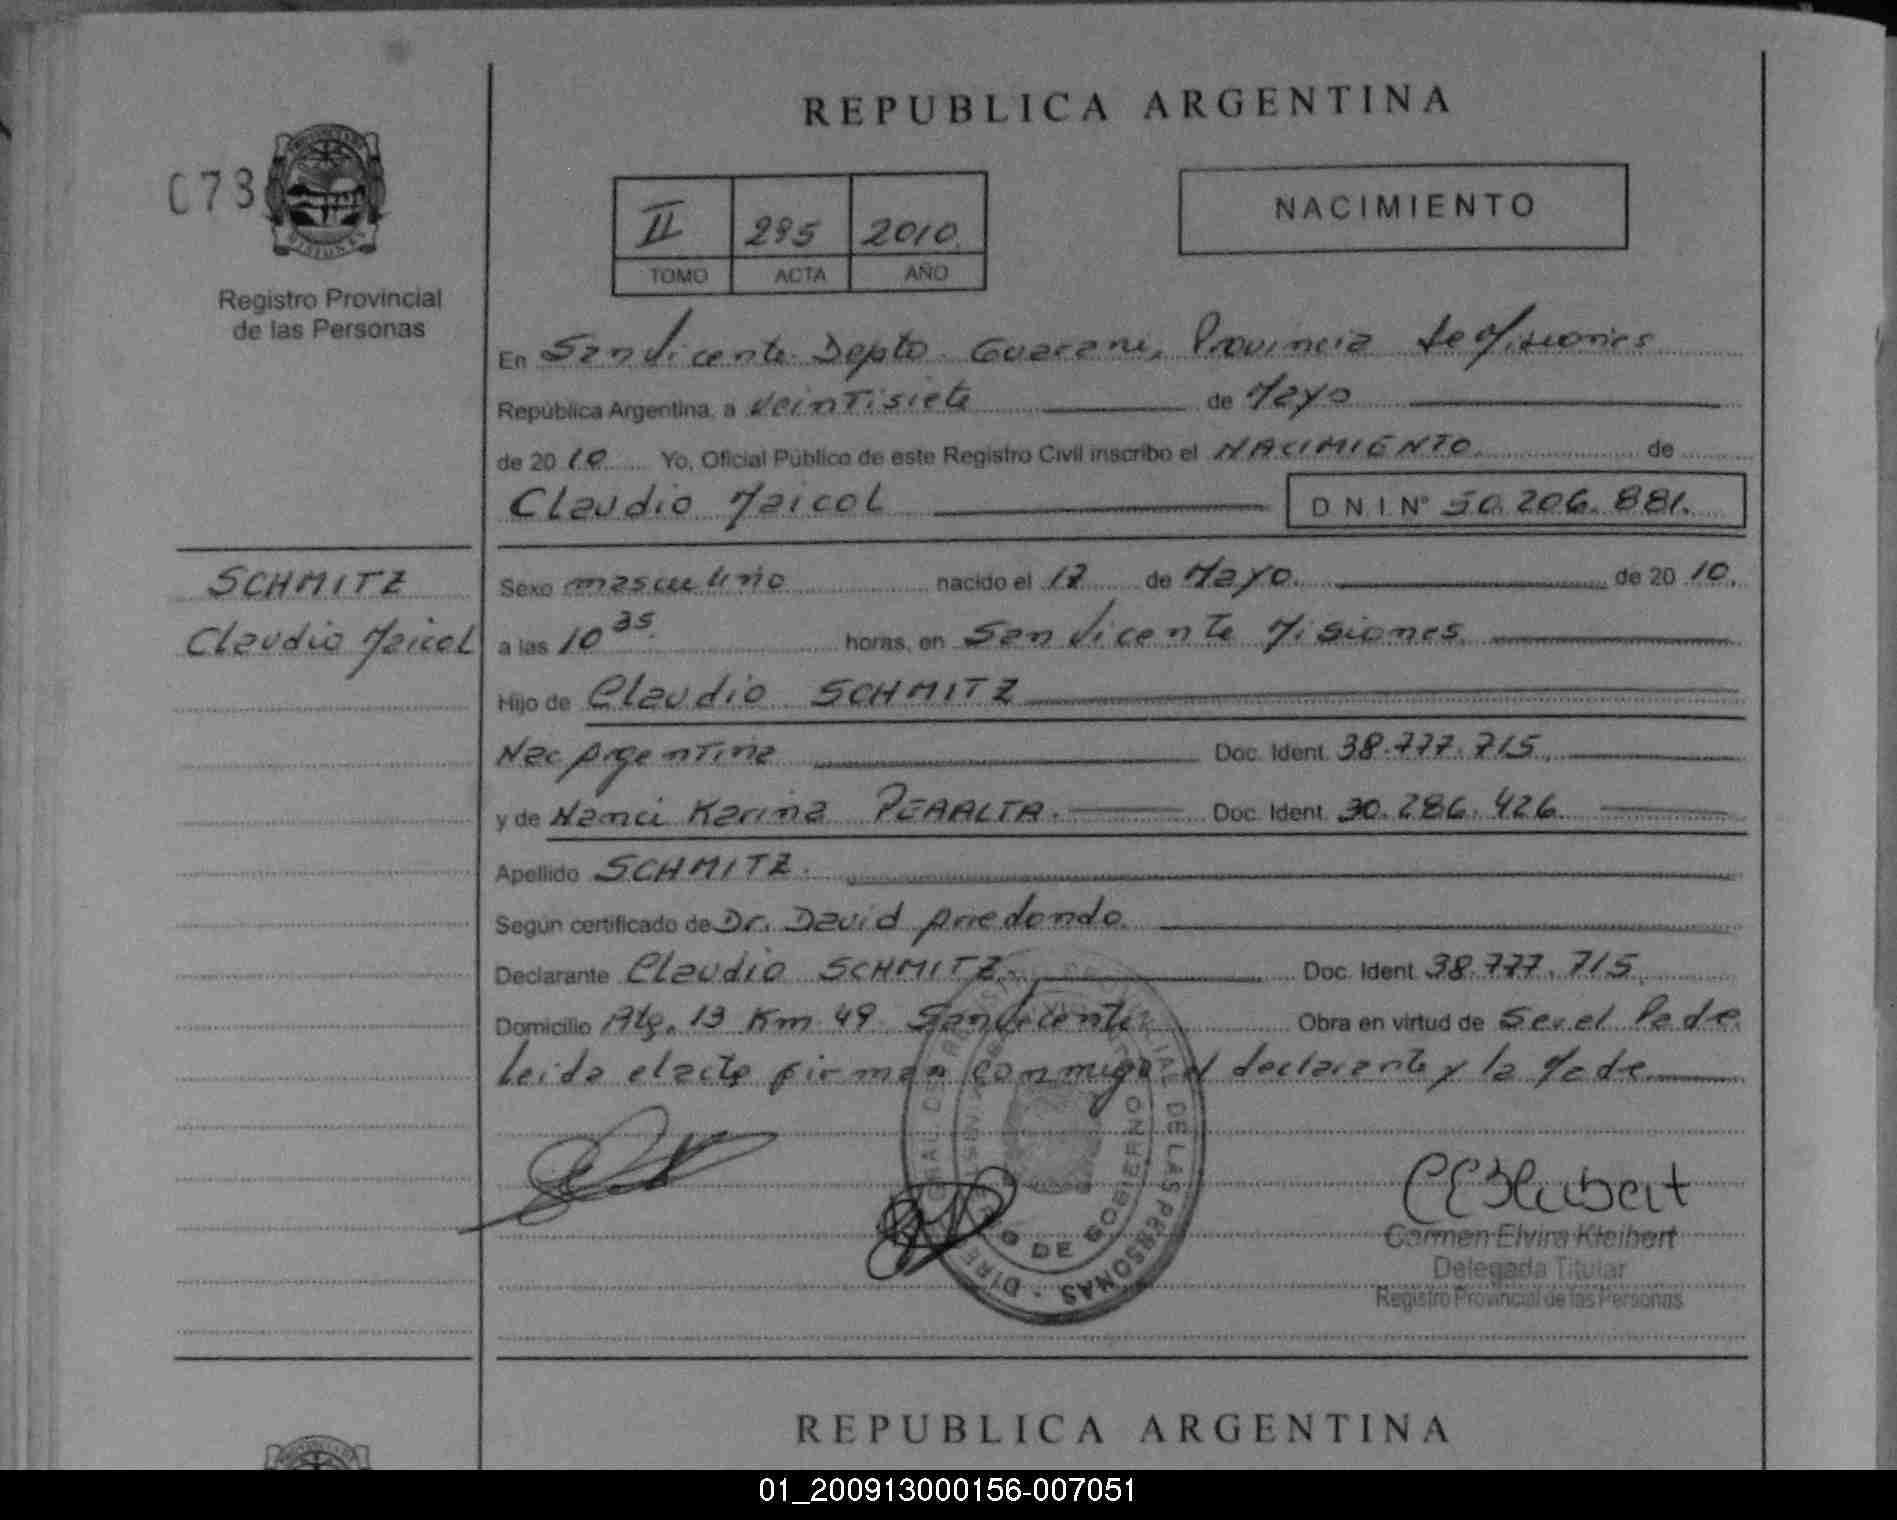 REPUBLICA ARGENTINA
073
II 295 2010
TOMO ACTA AÑO
NACIMIENTO
Registro Provincial
de las Personas
En San Vicente Depto Guarani, Provincia de Misiones
República Argentina, a veintisiete de Mayo
de 2010 Yo, Oficial Público de este Registro Civil inscribo el NACIMIENTO de
Claudio Maicol D N I Nº 50.206.881.
SCHMITZ
Claudio Maicol
Sexo masculino nacido el 17 de Mayo. de 2010.
a las 10 35 horas, en San Vicente Misiones
Hijo de Claudio SCHMITZ
Nac Argentina Doc. Ident. 38.777.715
y de Nanci Karina PERALTA. Doc. Ident. 30.286.426
Apellido SCHMITZ.
Según certificado de Dr. David Arredondo.
Declarante Claudio SCHMITZ Doc. Ident. 38.777.715
Domicilio Km 49 San Vicente Obra en virtud de Ser el Padre
leida el acta firman conmigo el declarante y la Madre
DE LAS PERSONAS
DE GOBIERNO
CEKleibert
Carmen Elvira Kleibert
Delegada Titular
Registro Provincial de las Personas
REPUBLICA ARGENTINA
01_200913000156-007051